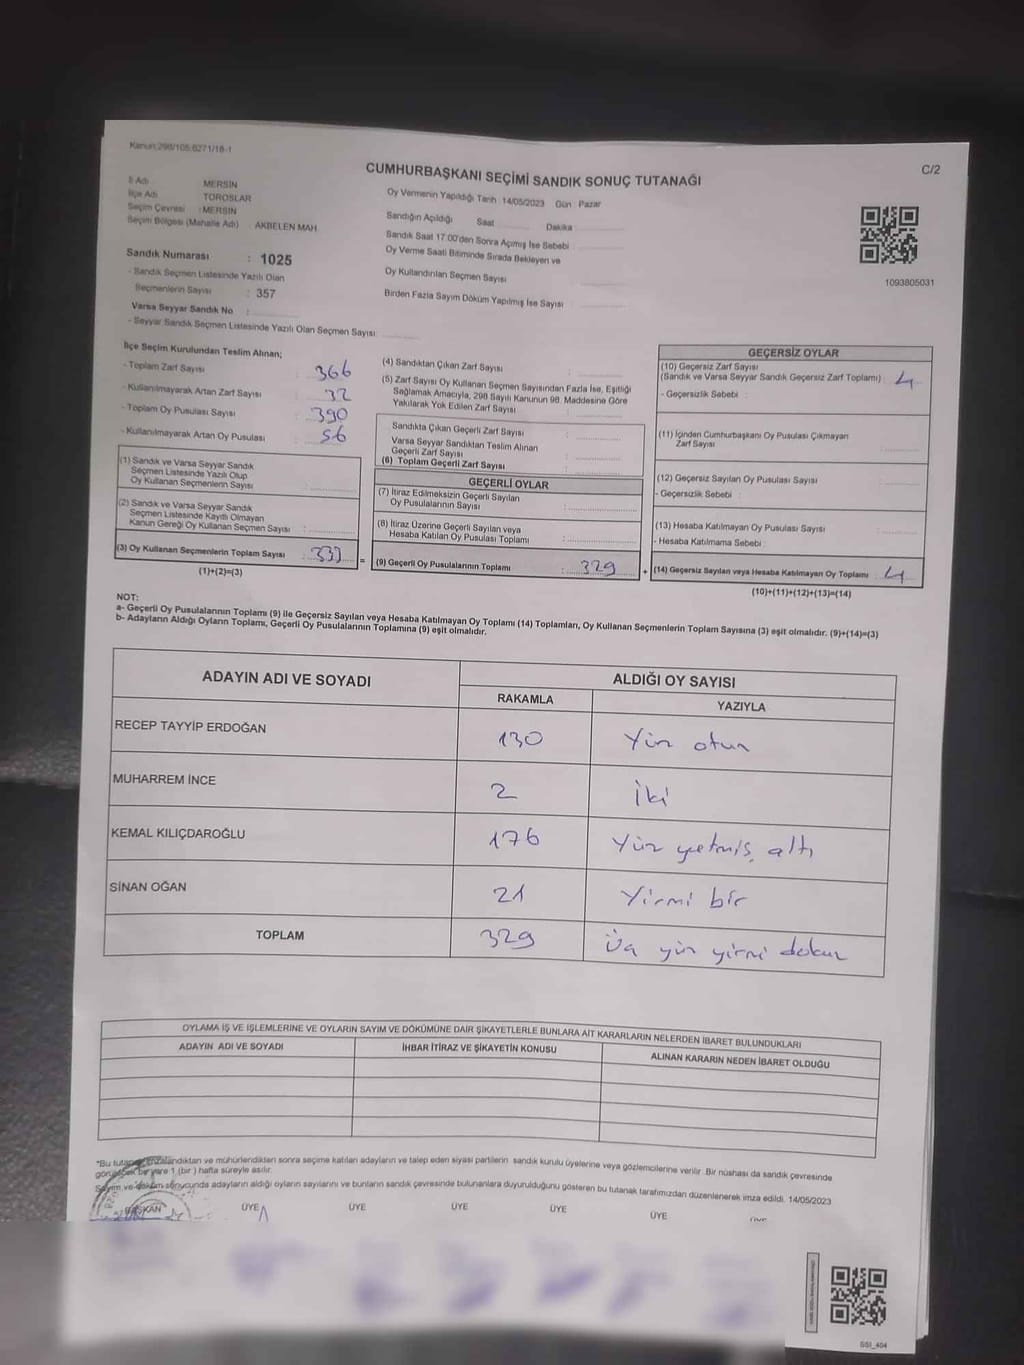 Kanun:298/105.6271/18-1
C/2
CUMHURBAŞKANI SEÇİMİ SANDIK SONUÇ TUTANAĞI
İl Adı : MERSİN
İlçe Adı : TOROSLAR
Seçim Çevresi : MERSİN
Seçim Bölgesi (Mahalle Adı) AKBELEN MAH.
Oy Vermenin Yapıldığı Tarih : 14/05/2023 Gün : Pazar
Sandığın Açıldığı Saat Dakika :
Sandık Saat 17:00'den Sonra Açımış İse Sebebi
Oy Verme Saati Bitiminde Sırada Bekleyen ve
Oy Kullandırılan Seçmen Sayısı
Birden Fazla Sayım Döküm Yapılmış İse Sayısı
1093805031
Sandık Numarası : 1025
- Sandık Seçmen Listesinde Yazılı Olan
Seçmenlerin Sayısı : 357
Varsa Seyyar Sandık No :
- Seyyar Sandık Seçmen Listesinde Yazılı Olan Seçmen Sayısı:
İlçe Seçim Kurulundan Teslim Alınan;
- Toplam Zarf Sayısı 366
- Kullanılmayarak Artan Zarf Sayısı 32
- Toplam Oy Pusulası Sayısı 390
- Kullanılmayarak Artan Oy Pusulası 56
(1) Sandık ve Varsa Seyyar Sandık
Seçmen Listesinde Yazılı Olup
Oy Kullanan Seçmenlerin Sayısı :
(2) Sandık ve Varsa Seyyar Sandık
Seçmen Listesinde Kayıtlı Olmayan
Kanun Gereği Oy Kullanan Seçmen Sayısı :
(3) Oy Kullanan Seçmenlerin Toplam Sayısı : 333 =
(1)+(2)=(3)
(4) Sandıktan Çıkan Zarf Sayısı :
(5) Zarf Sayısı Oy Kullanan Seçmen Sayısından Fazla İse, Eşitliği
Sağlamak Amacıyla, 298 Sayılı Kanunun 98. Maddesine Göre
Yakılarak Yok Edilen Zarf Sayısı :
Sandıkta Çıkan Geçerli Zarf Sayısı :
Varsa Seyyar Sandıktan Teslim Alınan
Geçerli Zarf Sayısı :
(6) Toplam Geçerli Zarf Sayısı :
GEÇERLİ OYLAR
(7) İtiraz Edilmeksizin Geçerli Sayılan
Oy Pusulalarının Sayısı :
(8) İtiraz Üzerine Geçerli Sayılan veya
Hesaba Katılan Oy Pusulası Toplamı :
(9) Geçerli Oy Pusulalarının Toplamı : 329 +
GEÇERSİZ OYLAR
(10) Geçersiz Zarf Sayısı
(Sandık ve Varsa Seyyar Sandık Geçersiz Zarf Toplamı) : 4
- Geçersizlik Sebebi :
(11) İçinden Cumhurbaşkanı Oy Pusulası Çıkmayan
Zarf Sayısı :
(12) Geçersiz Sayılan Oy Pusulası Sayısı :
- Geçersizlik Sebebi :
(13) Hesaba Katılmayan Oy Pusulası Sayısı :
- Hesaba Katılmama Sebebi :
(14) Geçersiz Sayılan veya Hesaba Katılmayan Oy Toplamı : 4
(10)+(11)+(12)+(13)=(14)
NOT:
a- Geçerli Oy Pusulalarının Toplamı (9) ile Geçersiz Sayılan veya Hesaba Katılmayan Oy Toplamı (14) Toplamları, Oy Kullanan Seçmenlerin Toplam Sayısına (3) eşit olmalıdır. (9)+(14)=(3)
b- Adayların Aldığı Oyların Toplamı, Geçerli Oy Pusulalarının Toplamına (9) eşit olmalıdır.
ADAYIN ADI VE SOYADI ALDIĞI OY SAYISI
RAKAMLA YAZIYLA
RECEP TAYYİP ERDOĞAN 130 Yüz otuz
MUHARREM İNCE 2 İki
KEMAL KILIÇDAROĞLU 176 Yüz yetmiş altı
SİNAN OĞAN 21 Yirmi bir
TOPLAM 329 Üç yüz yirmi dokuz
OYLAMA İŞ VE İŞLEMLERİNE VE OYLARIN SAYIM VE DÖKÜMÜNE DAİR ŞİKAYETLERLE BUNLARA AİT KARARLARIN NELERDEN İBARET BULUNDUKLARI
ADAYIN ADI VE SOYADI İHBAR İTİRAZ VE ŞİKAYETİN KONUSU ALINAN KARARIN NEDEN İBARET OLDUĞU
*Bu tutanak imzalandıktan ve mühürlendikten sonra seçime katılan adayların ve talep eden siyasi partilerin sandık kurulu üyelerine veya gözlemcilerine verilir. Bir nüshası da sandık çevresinde
görülebilecek bir yere 1 (bir) hafta süreyle asılır.
Sayım ve döküm sonucunda adayların aldığı oyların sayılarını ve bunların sandık çevresinde bulunanlara duyurulduğunu gösteren bu tutanak tarafımızdan düzenlenerek imza edildi. 14/05/2023
BAŞKAN ÜYE ÜYE ÜYE ÜYE ÜYE
SSI_404